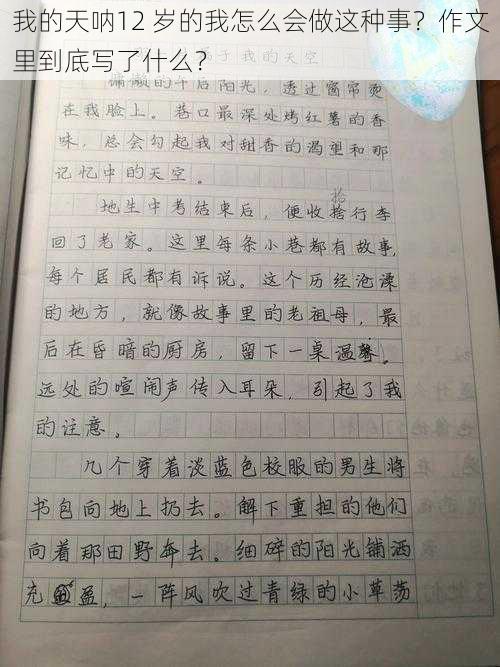 我的天呐12 岁的我怎么会做这种事？作文
里到底写了什么？
于我的天空
慵懒的午后阳光，透过窗帘烫
在我脸上。巷口最深处烤红薯的香
味，总会勾起我对甜香的渴望和那
记忆中的天空。
拾
地生中考结束后，便收捨行李
回了老家。这里每条小巷都有故事，
每个居民都有诉说。这个历经沧澡
的地方，就像故事里的老祖母，最
后在昏暗的厨房，留下一桌温馨。
远处的喧闹声传入耳朵，引起了我
的注意。
几个穿着淡蓝色校服的男生将
书包向地上扔去。解下重担的他们
向着那田野奔去。细碎的阳光铺洒
充盈，一阵风吹过青绿的小草荡